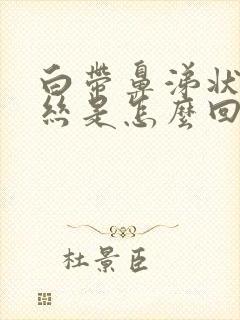 白带鼻涕狀
絲是怎麼回
杜景臣